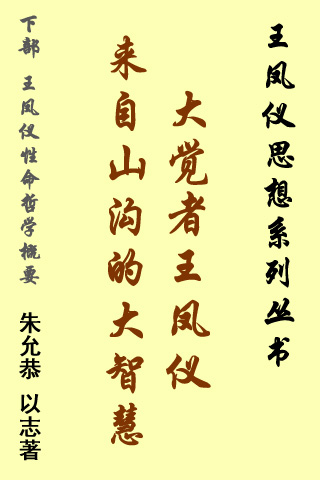 王凤仪思想系列丛书
大觉者王凤仪
来自山沟的大智慧
下部 王凤仪性命哲学概要
朱允恭 以志著